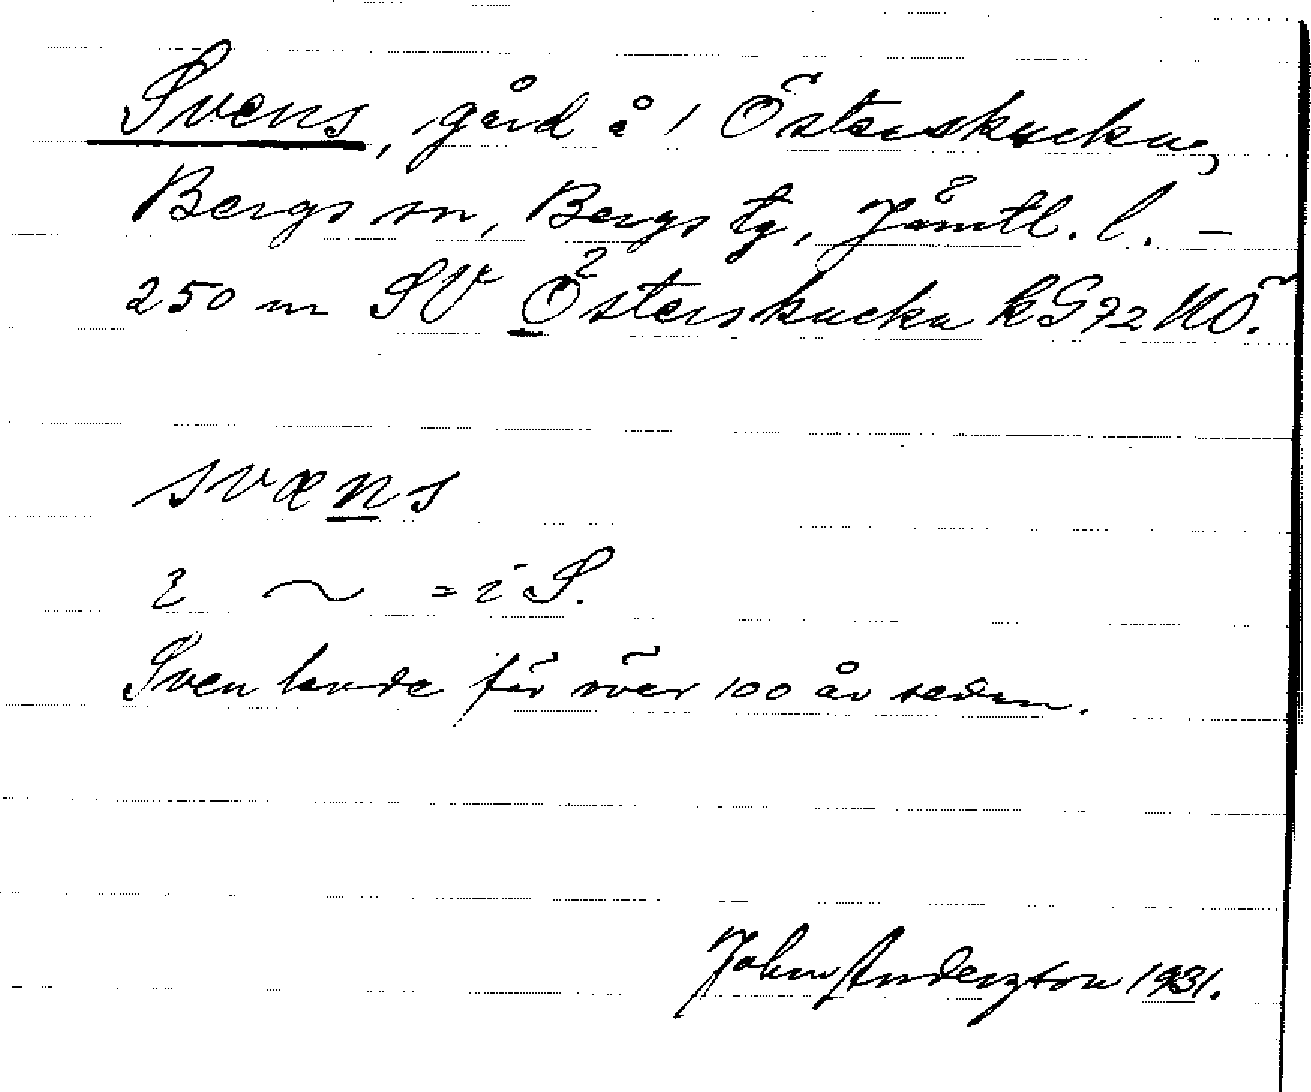 Svens, gård å 1 Österskucku,
Bergs sn, Bergs tg, Jämtl. l. –
250 m SV Österskucku kG72 NÖ.
svæns
i ~ = i S.
Sven levde för över 100 år sedan.
John Anderzton 1931.